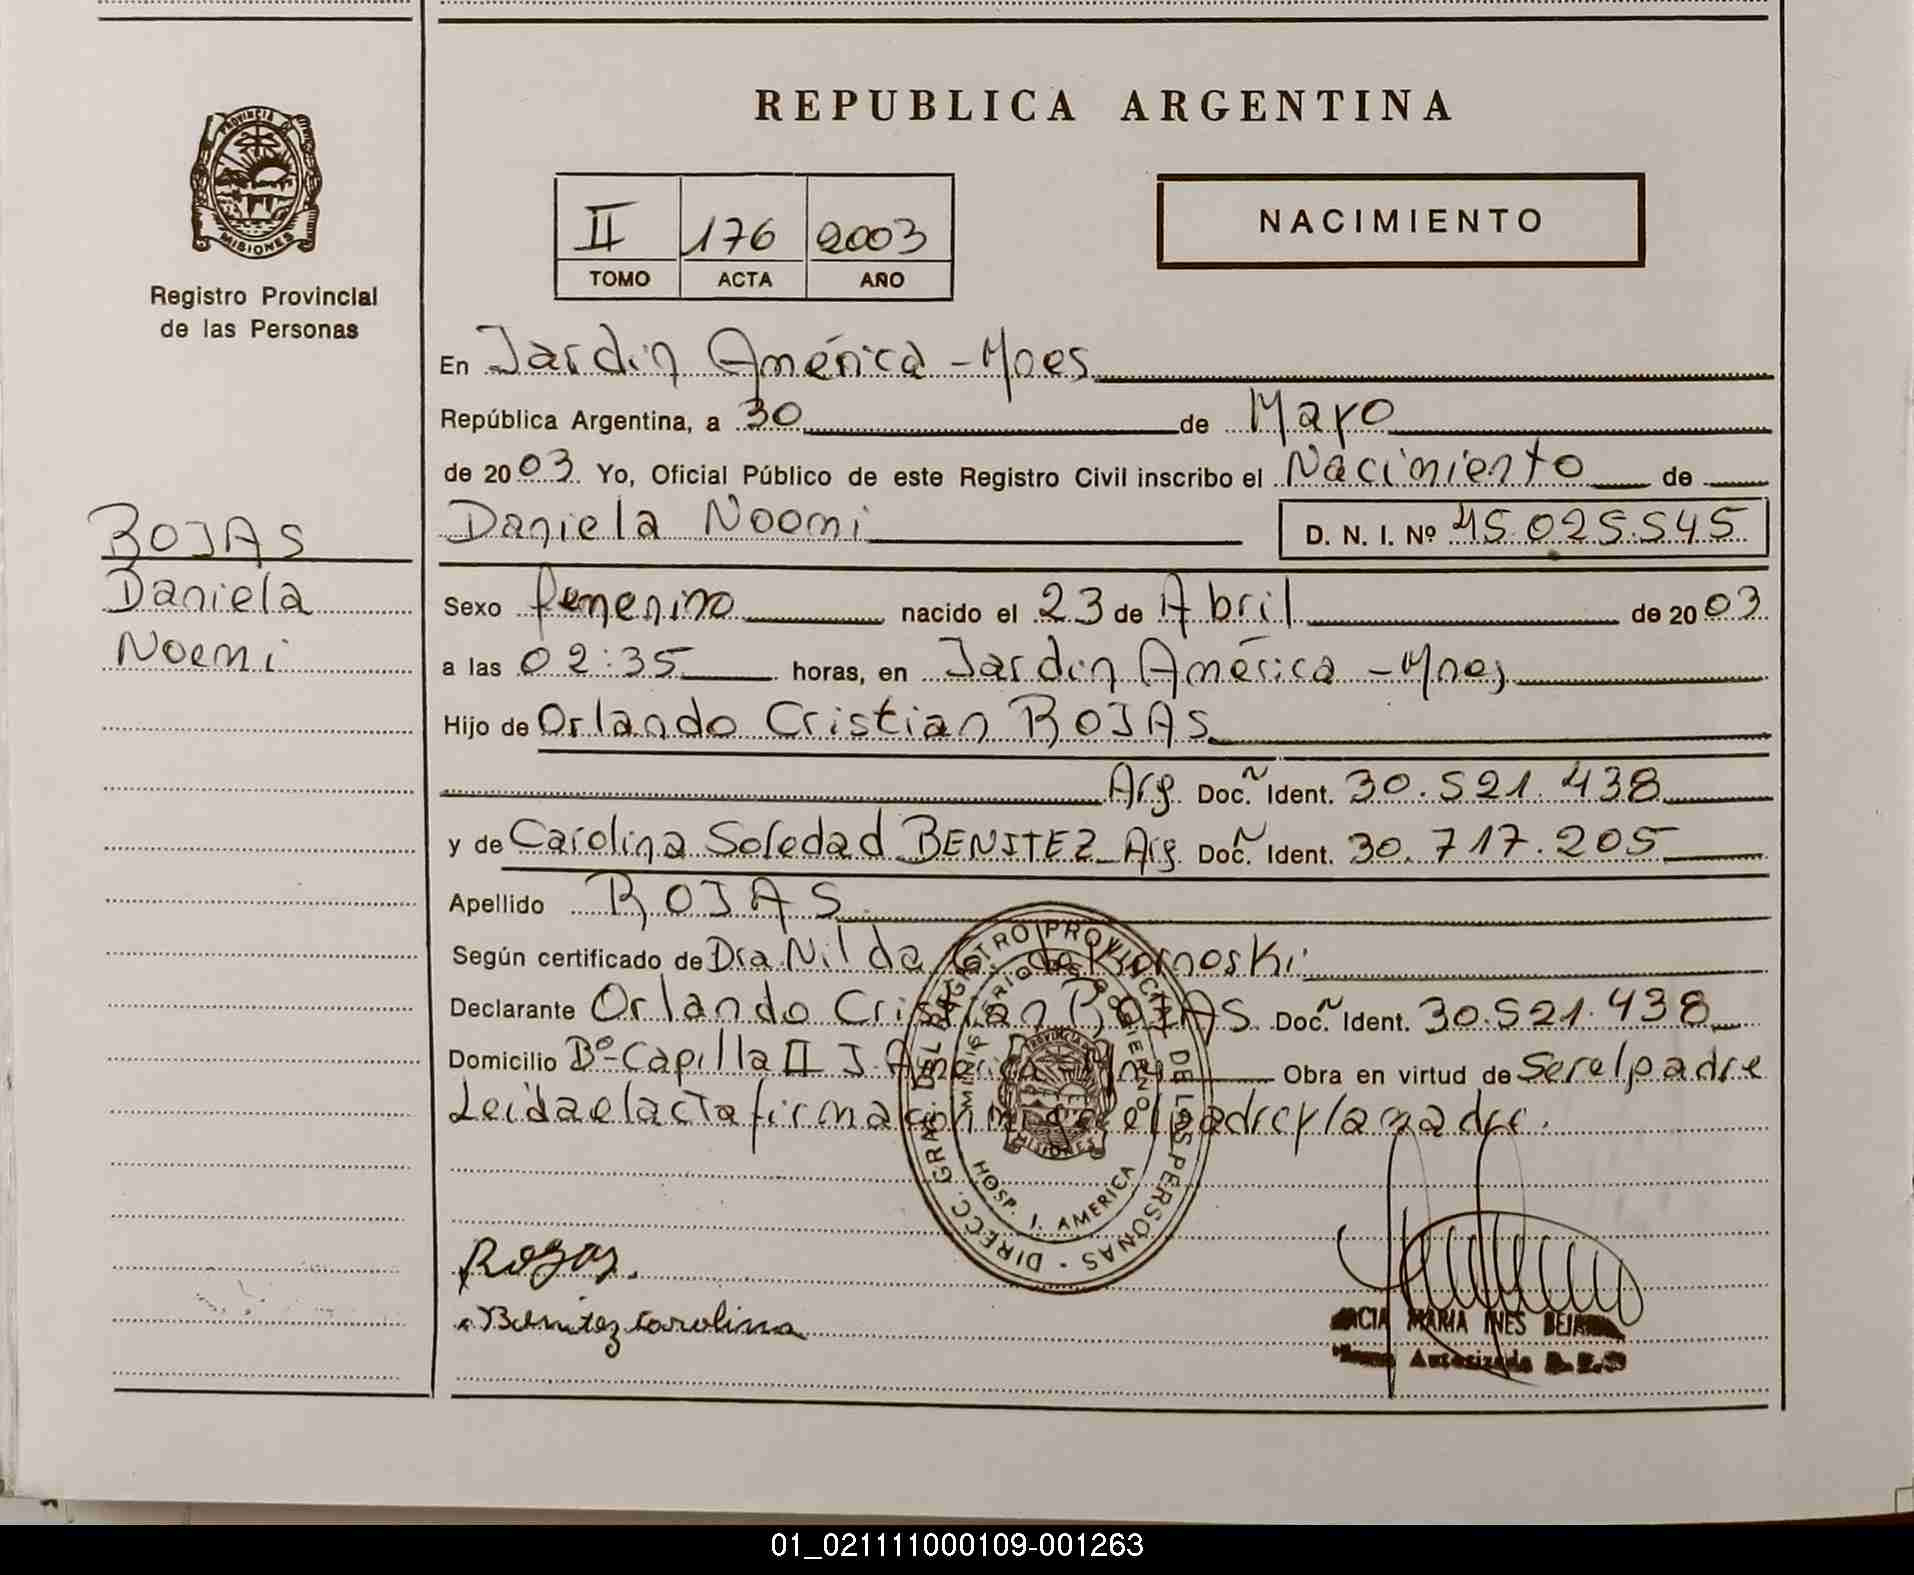 REPUBLICA ARGENTINA
PROVINCIA DE
MISIONES
Registro Provincial
de las Personas
II 176 2003
TOMO ACTA AÑO
NACIMIENTO
En Jardin América - Mnes
República Argentina, a 30 de Mayo
de 2003 Yo, Oficial Público de este Registro Civil inscribo el Nacimiento de
Daniela Noemi D. N. I. Nº 45.025.545
ROJAS
Daniela
Noemi
Sexo femenino nacido el 23 de Abril de 2003
a las 02:35 horas, en Jardin América - Mnes
Hijo de Orlando Cristian ROJAS
Arg. Doc. Ident. 30.521.438
y de Carolina Soledad BENITEZ Arg. Doc. Ident. 30.717.205
Apellido ROJAS
Según certificado de Dra Nilda
Declarante Orlando Cristian ROJAS Doc. Ident. 30.521.438
Domicilio Bº Capilla II J. América - Mnes Obra en virtud de Ser el padre
Leida el acta firma el padre y la madre.
DIRECC. GRAL. DEL REGISTRO PROVINCIAL DE LAS PERSONAS
MINISTERIO DE GOBIERNO
PROVINCIA DE
MISIONES
HOSP. J. AMERICA
Rojas.
Benitez Carolina
MARIA INES
01_021111000109-001263